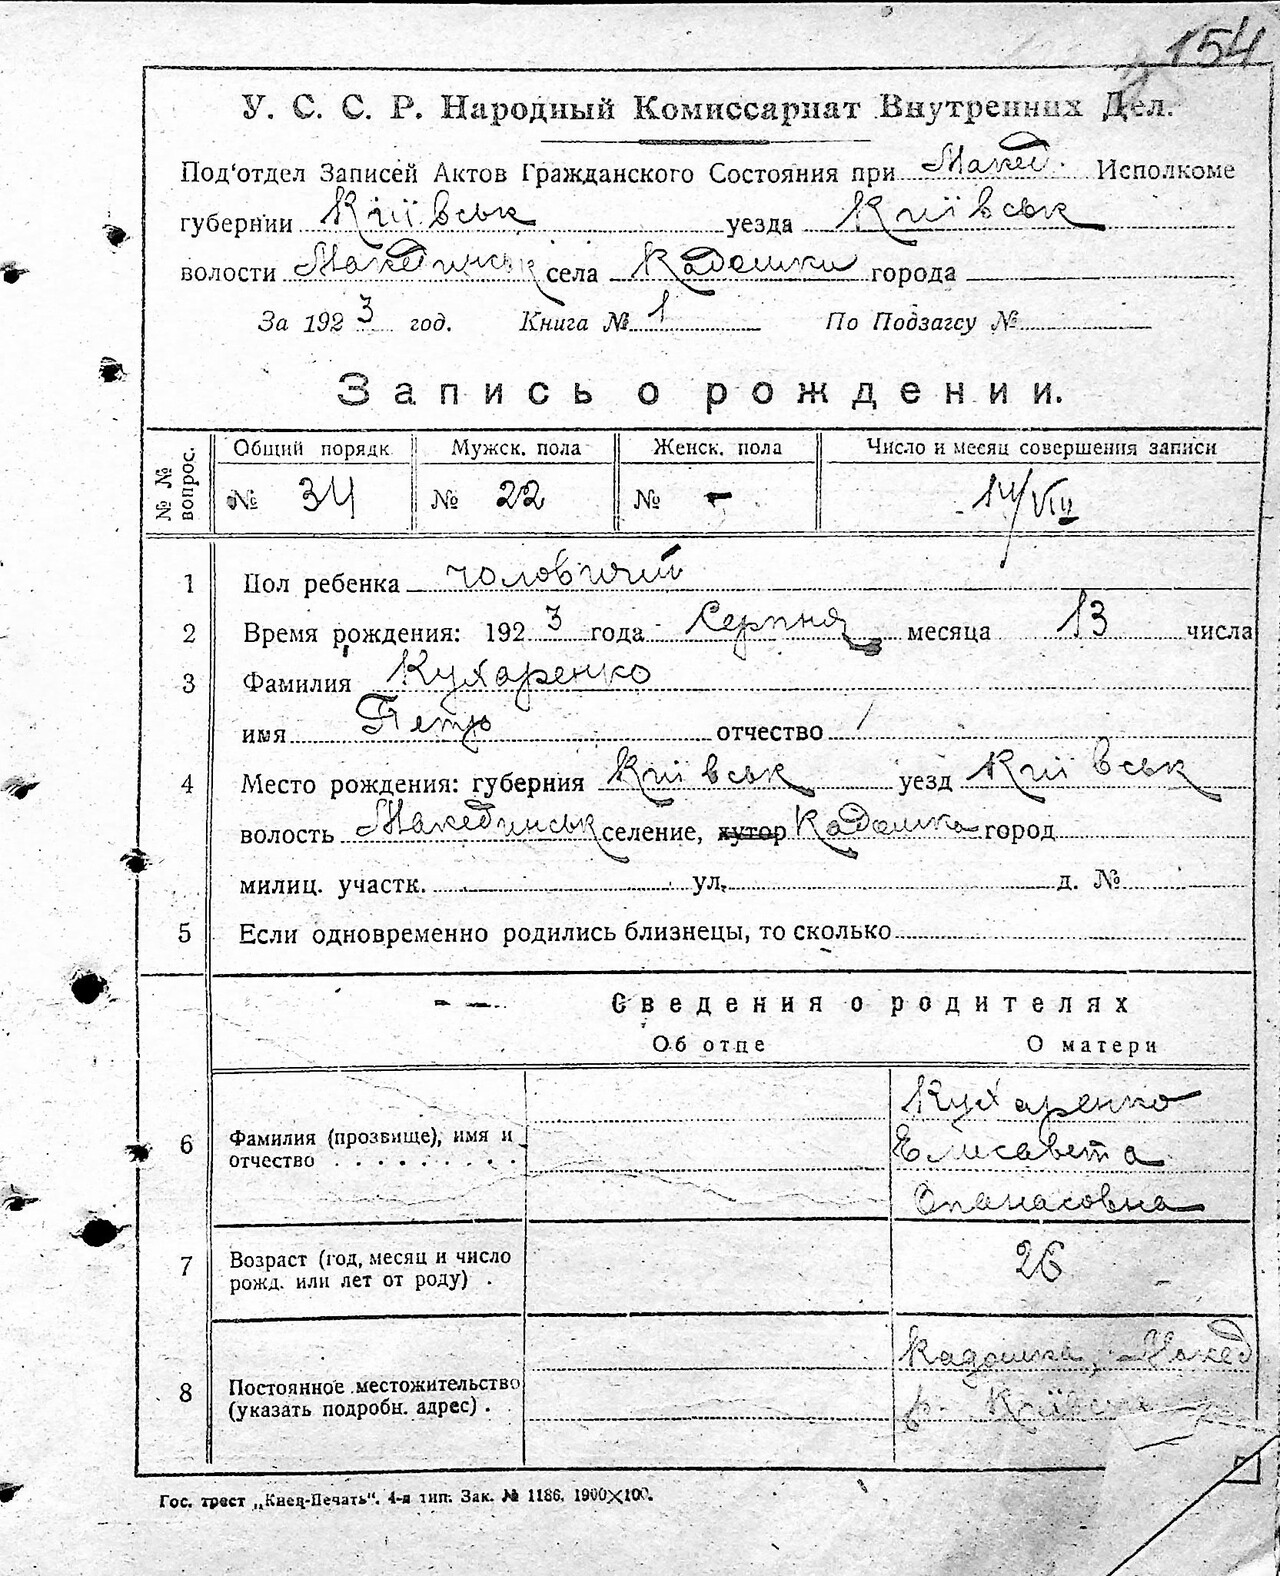 154
У. С. С. Р. Народный Комиссариат Внутренних Дел.
Под'отдел Записей Актов Гражданского Состояния при Макед. Исполкоме
губернии Київськ уезда Київськ
волости Макединськ села Кадомки города
За 1923 год. Книга № 1 По Подзагсу №
Запись о рождении.
№ № вопрос. Общий порядк. Мужск. пола Женск. пола Число и месяц совершения записи
№ 34 № 22 № - 14/VIII
1 Пол ребенка чоловичий
2 Время рождения: 1923 года Серпня месяца 13 числа
3 Фамилия Кухаренко
имя Петро отчество /
4 Место рождения: губерния Київськ уезд Київськ
волость Макединськ селение, хутор Кадомка город
милиц. участк. ул. д. №
5 Если одновременно родились близнецы, то сколько
Сведения о родителях
Об отце О матери
Кухаренко
6 Фамилия (прозвище), имя и Елисавета
отчество Опанасовна
7 Возраст (год, месяц и число 26
рожд. или лет от роду) .
Кадомка, Макед
8 Постоянное местожительство р. Київськ
(указать подробн. адрес) .
Гос. трест „Киев-Печать". 4-я тип. Зак. № 1186. 1900×100.